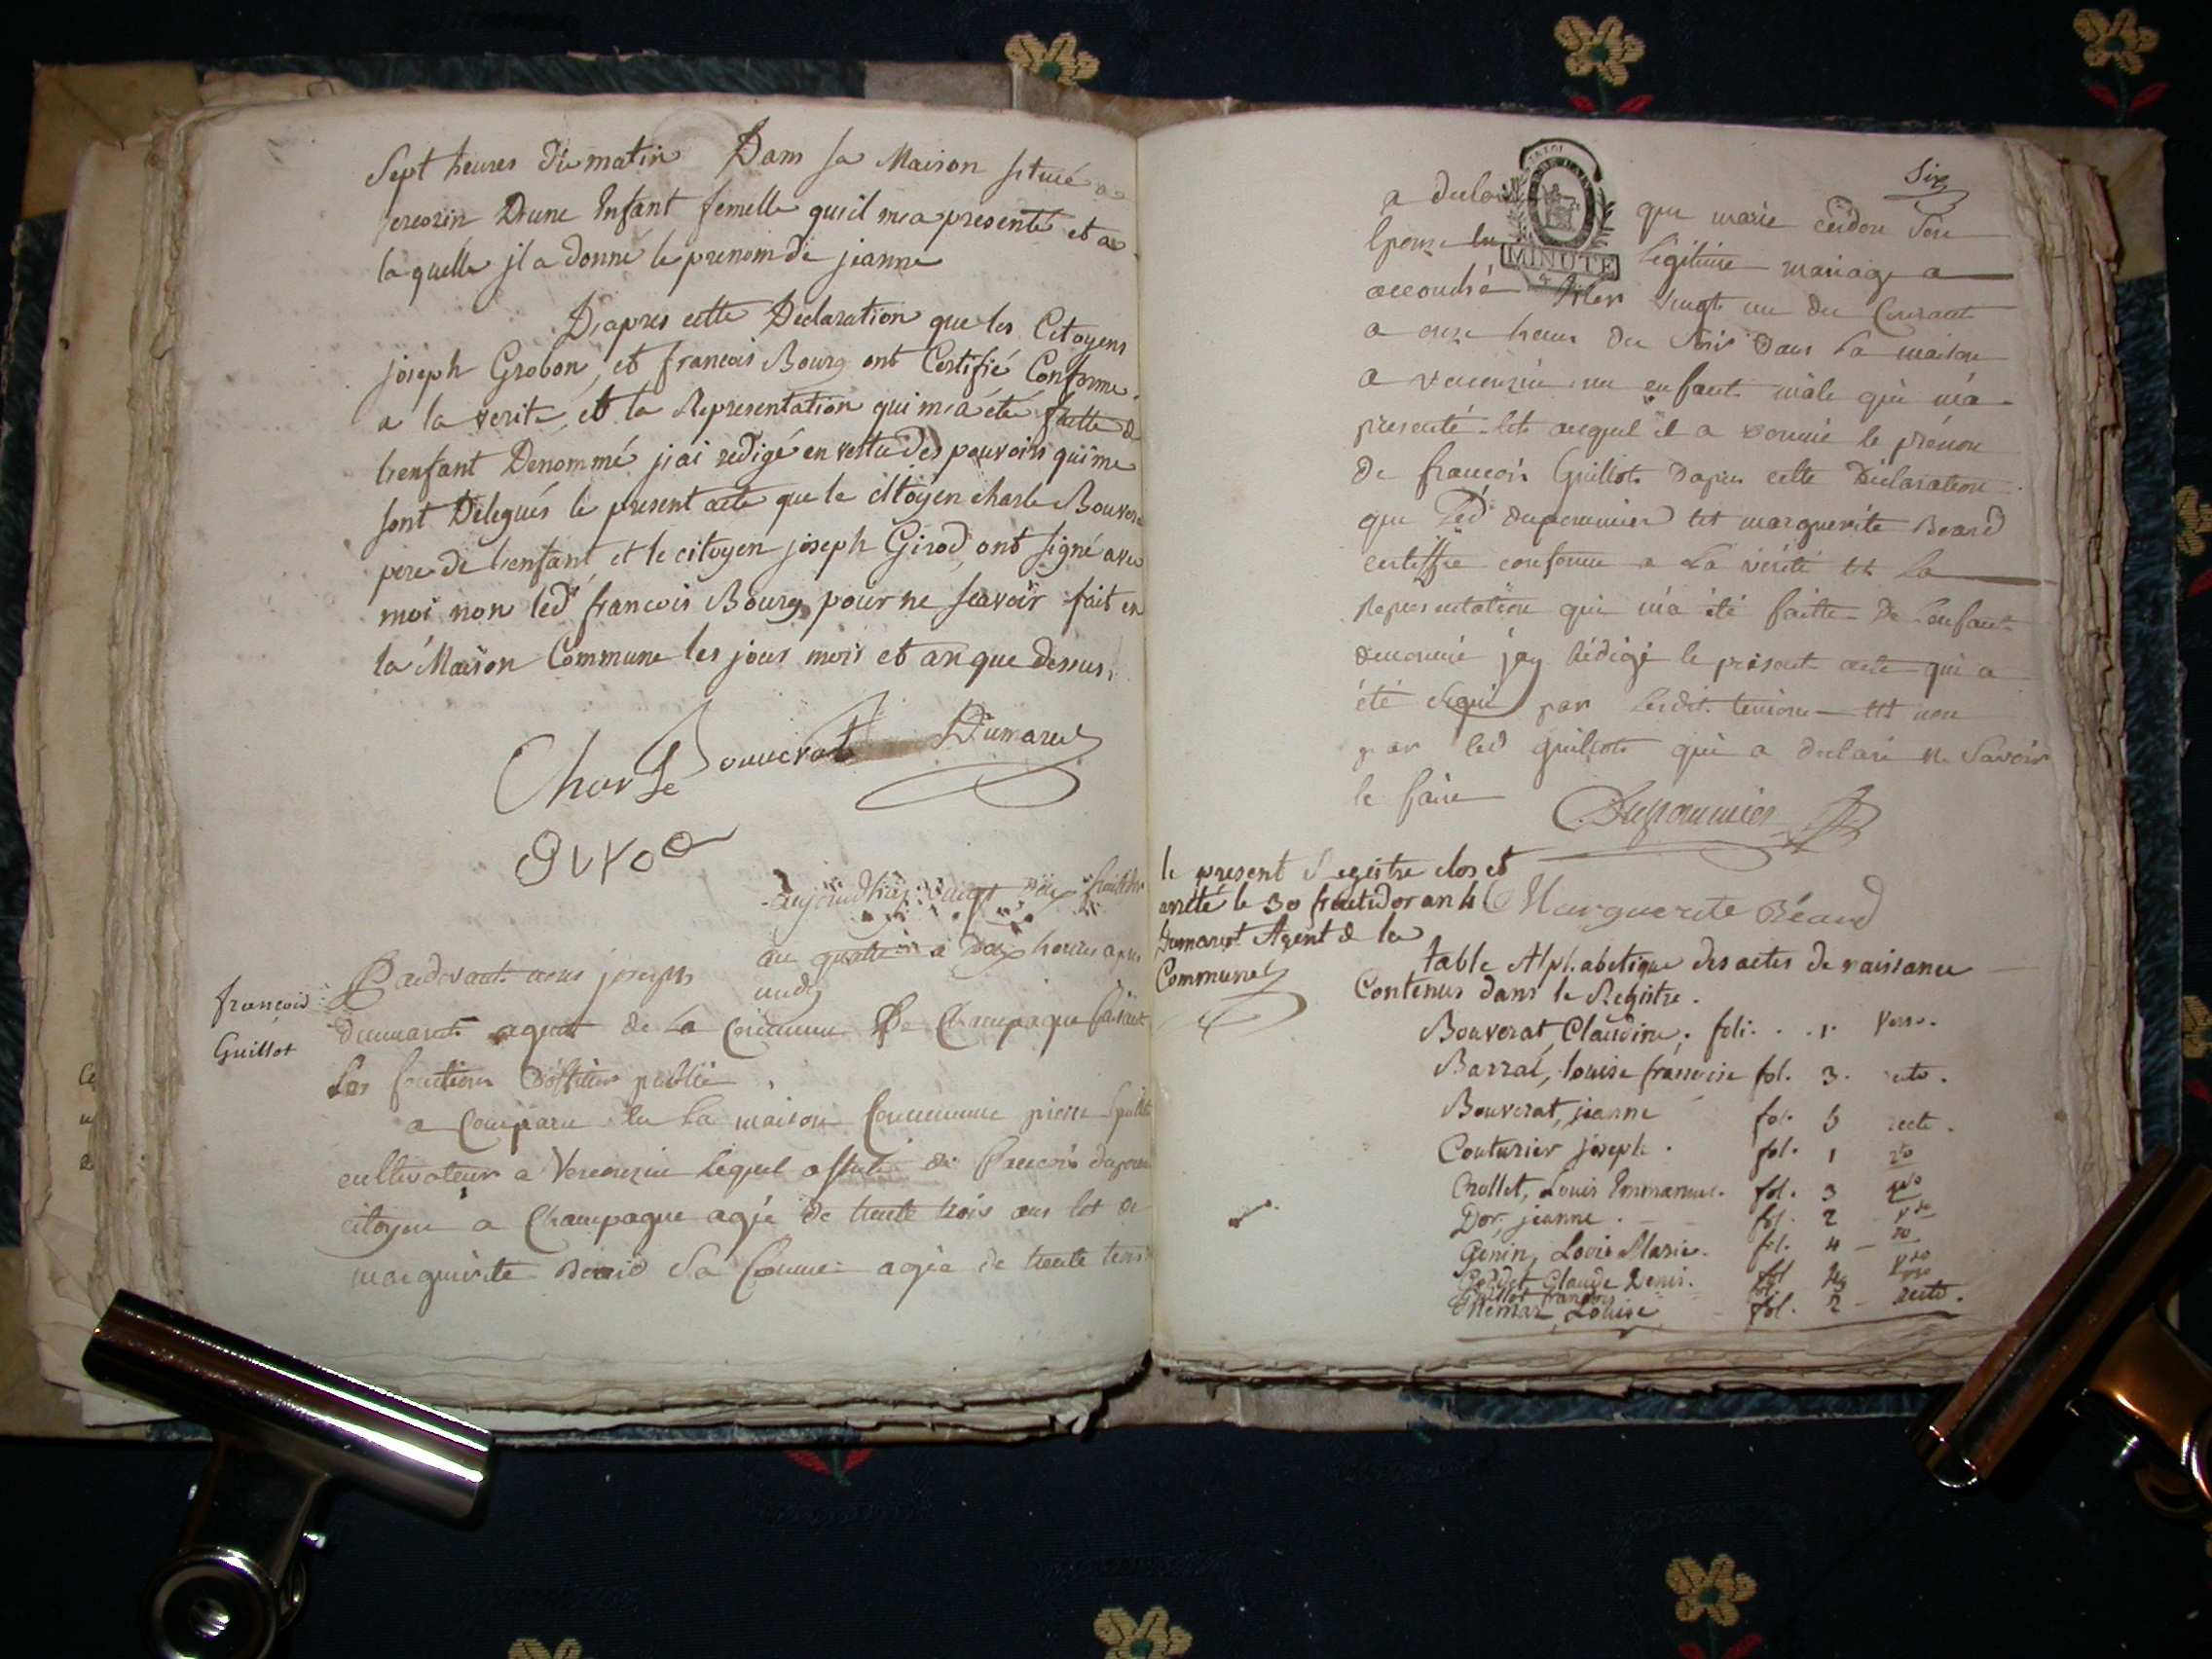 Sept heures du matin Dans sa Maison situé a
Dune Enfant femelle quil m'a presenté et a
laquelle jl a donné le prenom de jeanne
D'apres cette Declaration que les Citoyens
joseph Grobon, et francois Bourg ont Certifié Conforme
a la verité, et la Representation qui m'a été faitte de
l'enfant Denommé j'ai redigé en vertu des pouvoirs qui me
sont Delegués le present acte que le citoyen charle Bouvera
pere de l'enfant et le citoyen joseph Girod, ont signé avec
moi non led. francois Bourg pour ne scavoir fait en
la Maison Commune les jour mois et an que dessus.
Charle Bouverat Dumarest
Girod
aujourdhuy vingt deux fructidor
an quatre a dix heures apres
midy
françois
Guillot
Pardevant nous joseph
dumarest agent de La Commune De Champagne faisant
Les fonctions d'officier public
a Comparu En La maison Commune pierre Guillot
cultivateur a Vercourin lequel assisté de francois
citoyen a Champagne agée de trente trois ans Et de
marguerite Beard Sa femme agée de trente trois
Six
a declaré que marie cerdon son
Epouse En Legitime mariage a
accouché hier vingt un du Courant
a onze heures du Soir dans La maison
a un enfant mâle qui m'a
presenté Et auquel il a donné le prénom
de françois Guillot. Dapres cette Déclaration
que Led. dupommier Et marguerite Beard
certiffie conforme a La vérité Et La
Representation qui m'a été faitte De L'enfant
denommé j'ay Rédigé le présent acte qui a
été Signé par Lesdit temoins Et non
par led guillot qui a declaré ne Savoir
le faire
Dupommier
MINUTE
Marguerite Béard
le present Registre clos et
arrêté le 30 fructidor an 4
Dumarest Agent de la
Commune
table Alphabetique des actes de naissance
Contenus dans le Registre.
Bouverat, Claudine. foli. . . 1. Verso.
Barral, louise francoise fol. 3. recto.
Bouverat, jeanne fol. 5 recto.
Couturier joseph. fol. 1 vso
Crollet, Louis Emmanuel. fol. 3 vso
Dor, jeanne. fol. 2 vso
Genin, Louis Marie. fol. 4 ro
Claude Denis. fol 4 vso
Guillot francois fol
Louise fol. 2 recto.